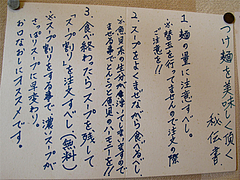 つけ麺を美味しく頂く
秘伝書
1、麺の量に注意すべし。
※替玉を行ってませんので注文の際
ご注意を!!
2、スープをよくまぜながら食べるべし。
※魚貝系の生分が沈んでいますので
まぜる事でとんこつと魚貝のハーモニーを!!
3、食べ終わったら、スープを残して
「スープ割り」を注文すべし(無料)
※スープ割りをする事で濃いスープが
さっぱりスープに早変わり。
お口なおしにオススメです。